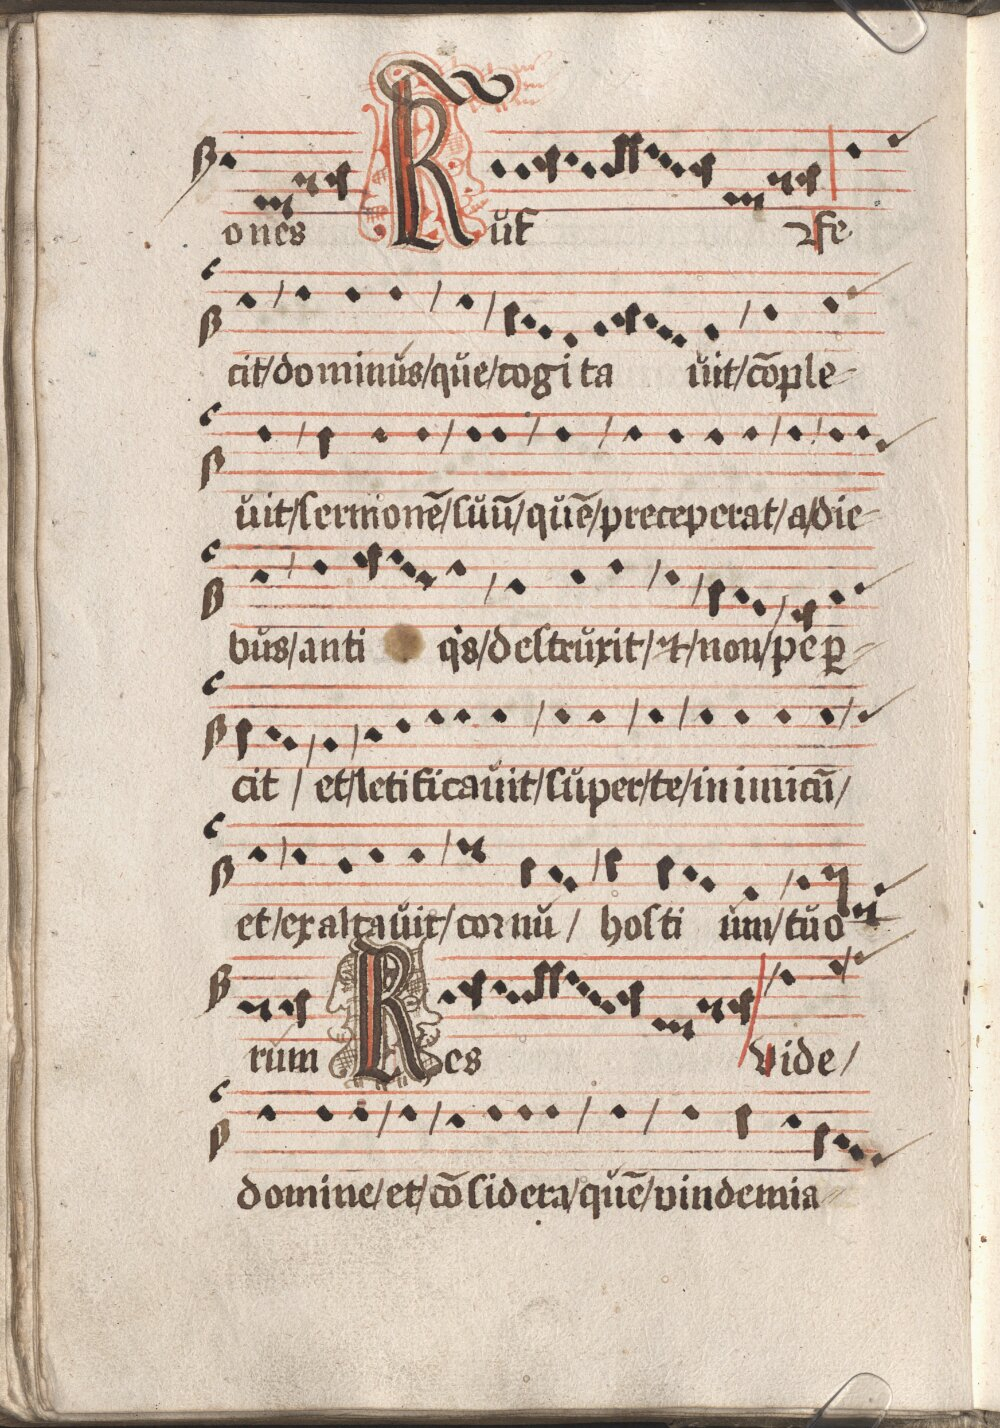 ones Rŭf Fe
cit/dominŭs/qŭe/cogita ŭit/cōple
ŭit/sermonē/sŭŭ̄/qŭē/preceperat/a/die
bŭs/anti q̇s/destrŭxit/⁊/non/peꝑ
cit / et/letificaŭit/sŭper/te/inimicŭ̄/
et/exaltaŭit/cornŭ/ hosti ŭm/tŭo
rŭm Res Vide/
domine/et/cōsidera/qŭē/vindemia